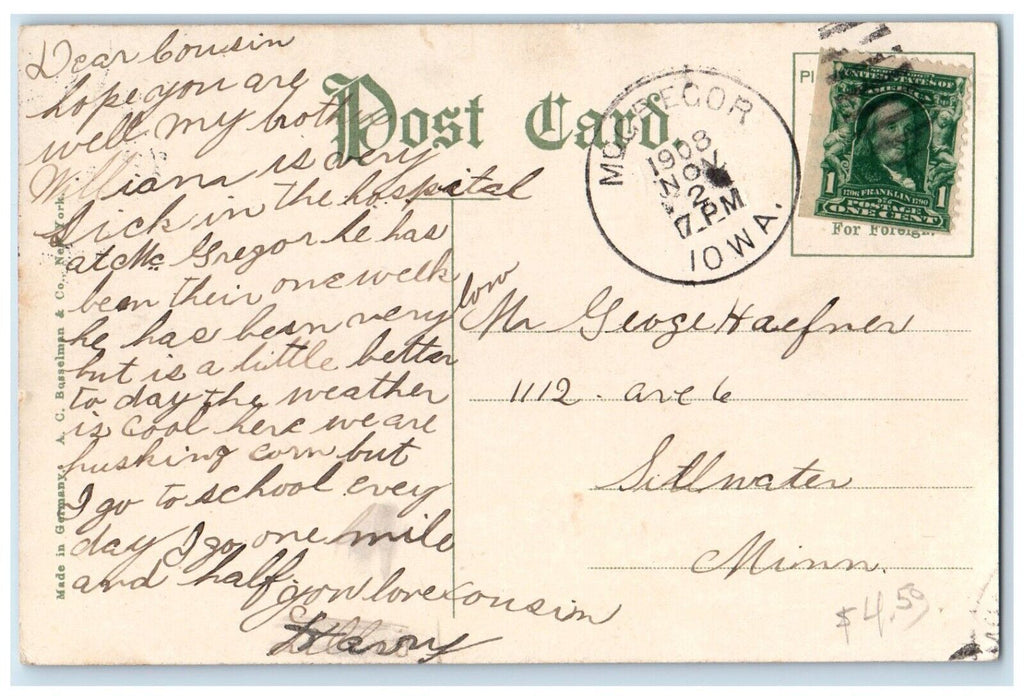 Dear Cousin
hope you are
well my brother
William is very
sick in the hospital
at Mc Gregor he has
been their one week
he has been very low
but is a little better
to day the weather
is cool here we are
husking corn but
I go to school every
day I go one mile
and half your love cousin
Harry
Post Card
MCGREGOR
1908
NOV
2
7 P.M
IOWA.
UNITED STATES OF
AMERICA
1 1798 FRANKLIN 1790 1
POSTAGE
ONE CENT
For Foreign
Mr Geoge Haefner
1112. ave 6
Sillwater
Minn.
$4.59.
Made in Germany. A. C. Bosselman & Co., New York.